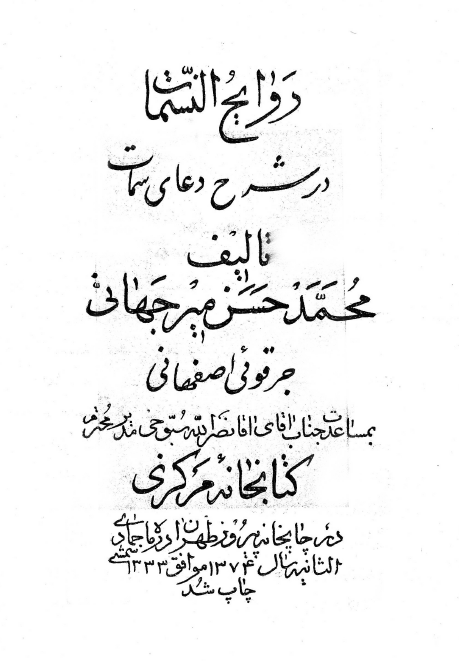 روایح النسمات
در شرح دعای سمات
تالیف
محمد حسن میرجهانی
جرقوئی اصفهانی
بمساعدت جناب اقای اقا نصرالله سبوحی مدیر محترم
کتابخانه مرکزی
در چاپخانه پیروز طهران در ماه جمادی
الثانیه سال ۱۳۷۴ موافق ۱۳۳۳ شمسی
چاپ شد